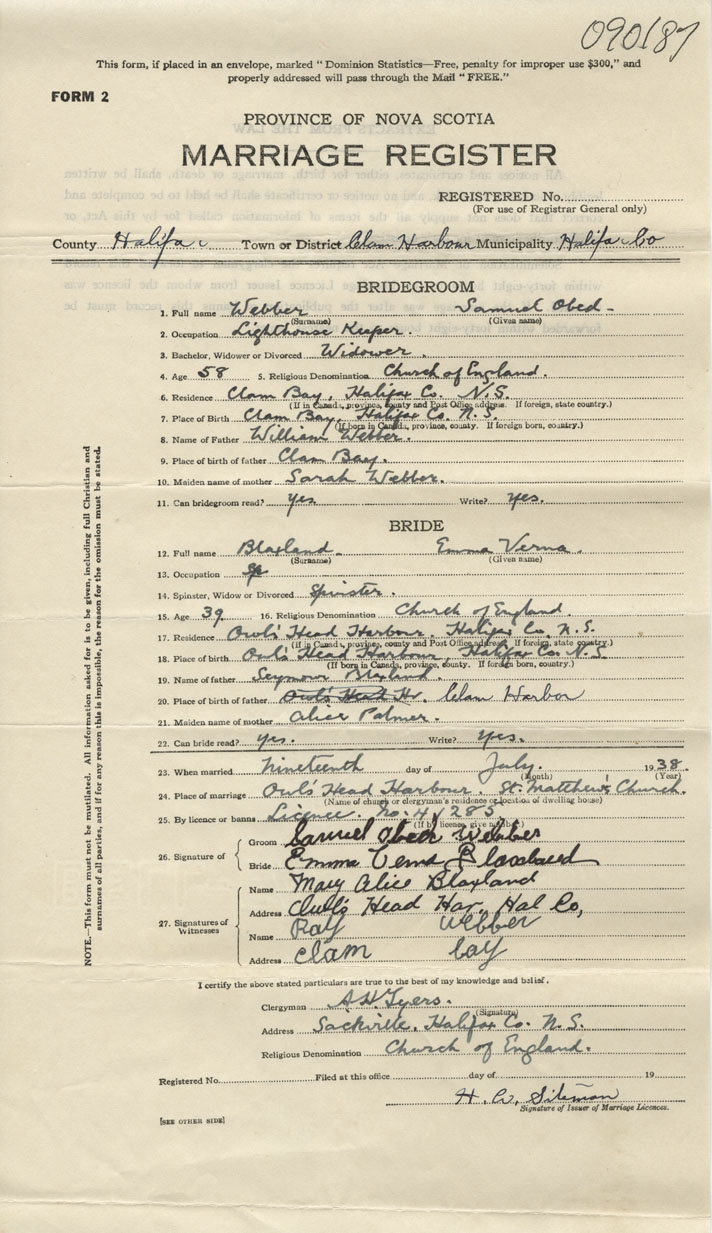 090187
This form, if placed in an envelope, marked "Dominion Statistics—Free, penalty for improper use $300," and
properly addressed will pass through the Mail "FREE."
FORM 2
PROVINCE OF NOVA SCOTIA
MARRIAGE REGISTER
REGISTERED No.
(For use of Registrar General only)
County Halifax Town or District Clam Harbour Municipality Halifax Co
BRIDEGROOM
1. Full name Webber Samuel Obed
(Surname) (Given name)
2. Occupation Lighthouse Keeper.
3. Bachelor, Widower or Divorced Widower.
4. Age 58 5. Religious Denomination Church of England.
6. Residence Clam Bay, Halifax Co. N.S.
(If in Canada, province, county and Post Office address. If foreign, state country.)
7. Place of Birth Clam Bay, Halifax Co. N.S.
(If born in Canada, province, county. If foreign born, country.)
8. Name of Father William Webber.
9. Place of birth of father Clam Bay.
10. Maiden name of mother Sarah Webber.
11. Can bridegroom read? yes Write? yes.
BRIDE
12. Full name Blaxland Emma Verna.
(Surname) (Given name)
13. Occupation Sp
14. Spinster, Widow or Divorced Spinster.
15. Age 39 16. Religious Denomination Church of England.
17. Residence Owl's Head Harbour, Halifax Co. N.S.
(If in Canada, province, county and Post Office address. If foreign, state country.)
18. Place of birth Owl's Head Harbour, Halifax Co. N.S.
(If born in Canada, province, county. If foreign born, country.)
19. Name of father Seymour Blaxland.
20. Place of birth of father Owl's Head Hr. Clam Harbor
21. Maiden name of mother Alice Palmer.
22. Can bride read? yes. Write? yes.
23. When married nineteenth day of July. 1938.
(Month) (Year)
24. Place of marriage Owl's Head Harbour. St. Matthew's Church.
(Name of church or clergyman's residence or location of dwelling house)
25. By licence or banns Licence. No. 41285
(If by licence, give number)
26. Signature of Groom Samuel Obed Webber
Bride Emma Verna Blaxland
27. Signatures of Witnesses
Name Mary Alice Blaxland
Address Owl's Head Har, Hal Co,
Name Ray Webber
Address Clam bay
I certify the above stated particulars are true to the best of my knowledge and belief.
Clergyman A H Tyers.
(Signature)
Address Sackville, Halifax Co. N.S.
Religious Denomination Church of England.
Registered No. Filed at this office day of 19
H. W. Siteman
Signature of Issuer of Marriage Licences.
[SEE OTHER SIDE]
NOTE.—This form must not be mutilated. All information asked for is to be given, including full Christian and
surnames of all parties, and if for any reason this is impossible, the reason for the omission must be stated.